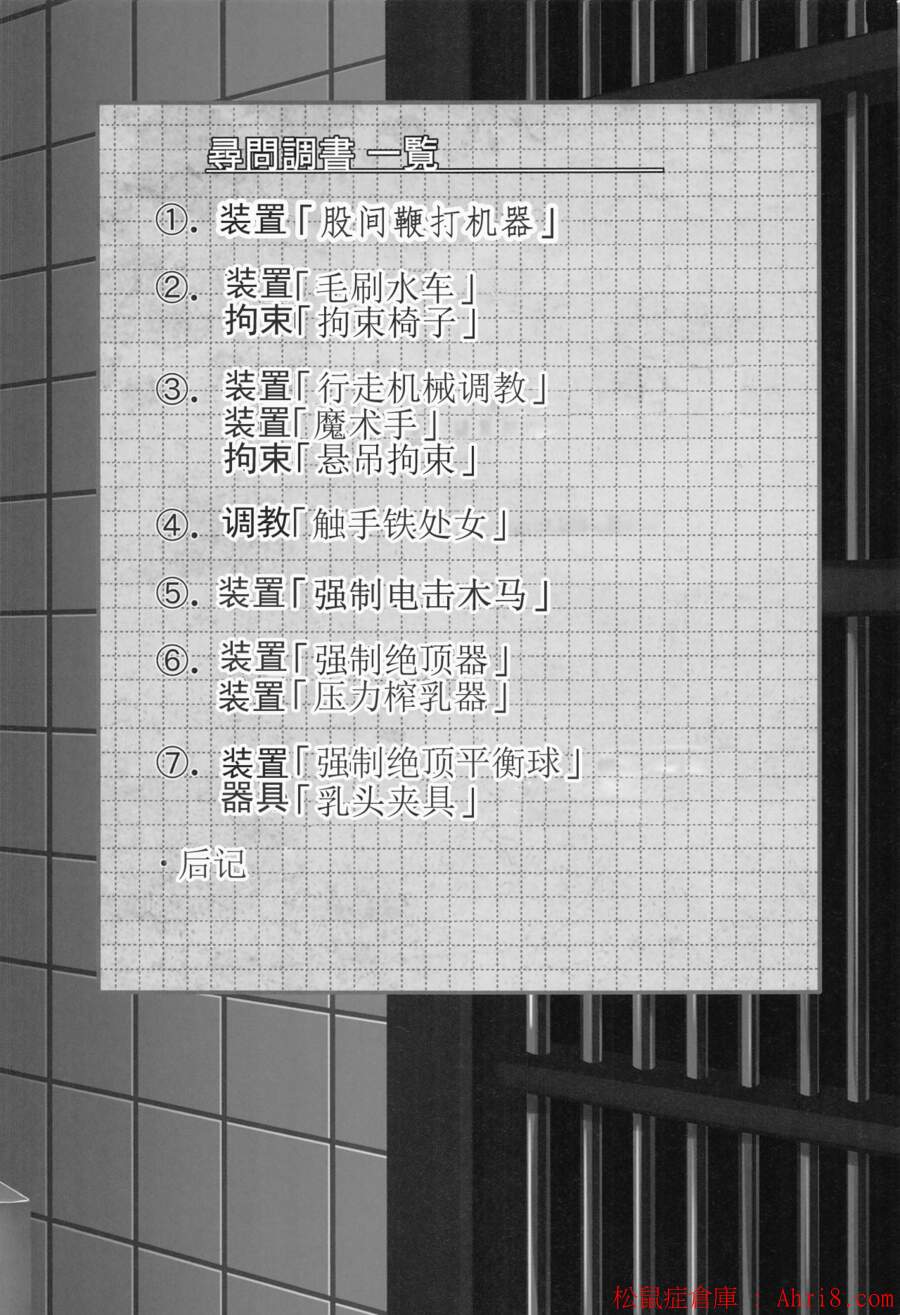 尋問調書 一覧
①. 装置「股间鞭打机器」
②. 装置「毛刷水车」
拘束「拘束椅子」
③. 装置「行走机械调教」
装置「魔术手」
拘束「悬吊拘束」
④. 调教「触手铁处女」
⑤. 装置「强制电击木马」
⑥. 装置「强制绝顶器」
装置「压力榨乳器」
⑦. 装置「强制绝顶平衡球」
器具「乳头夹具」
·后记
松鼠症倉庫 : Ahri8.com